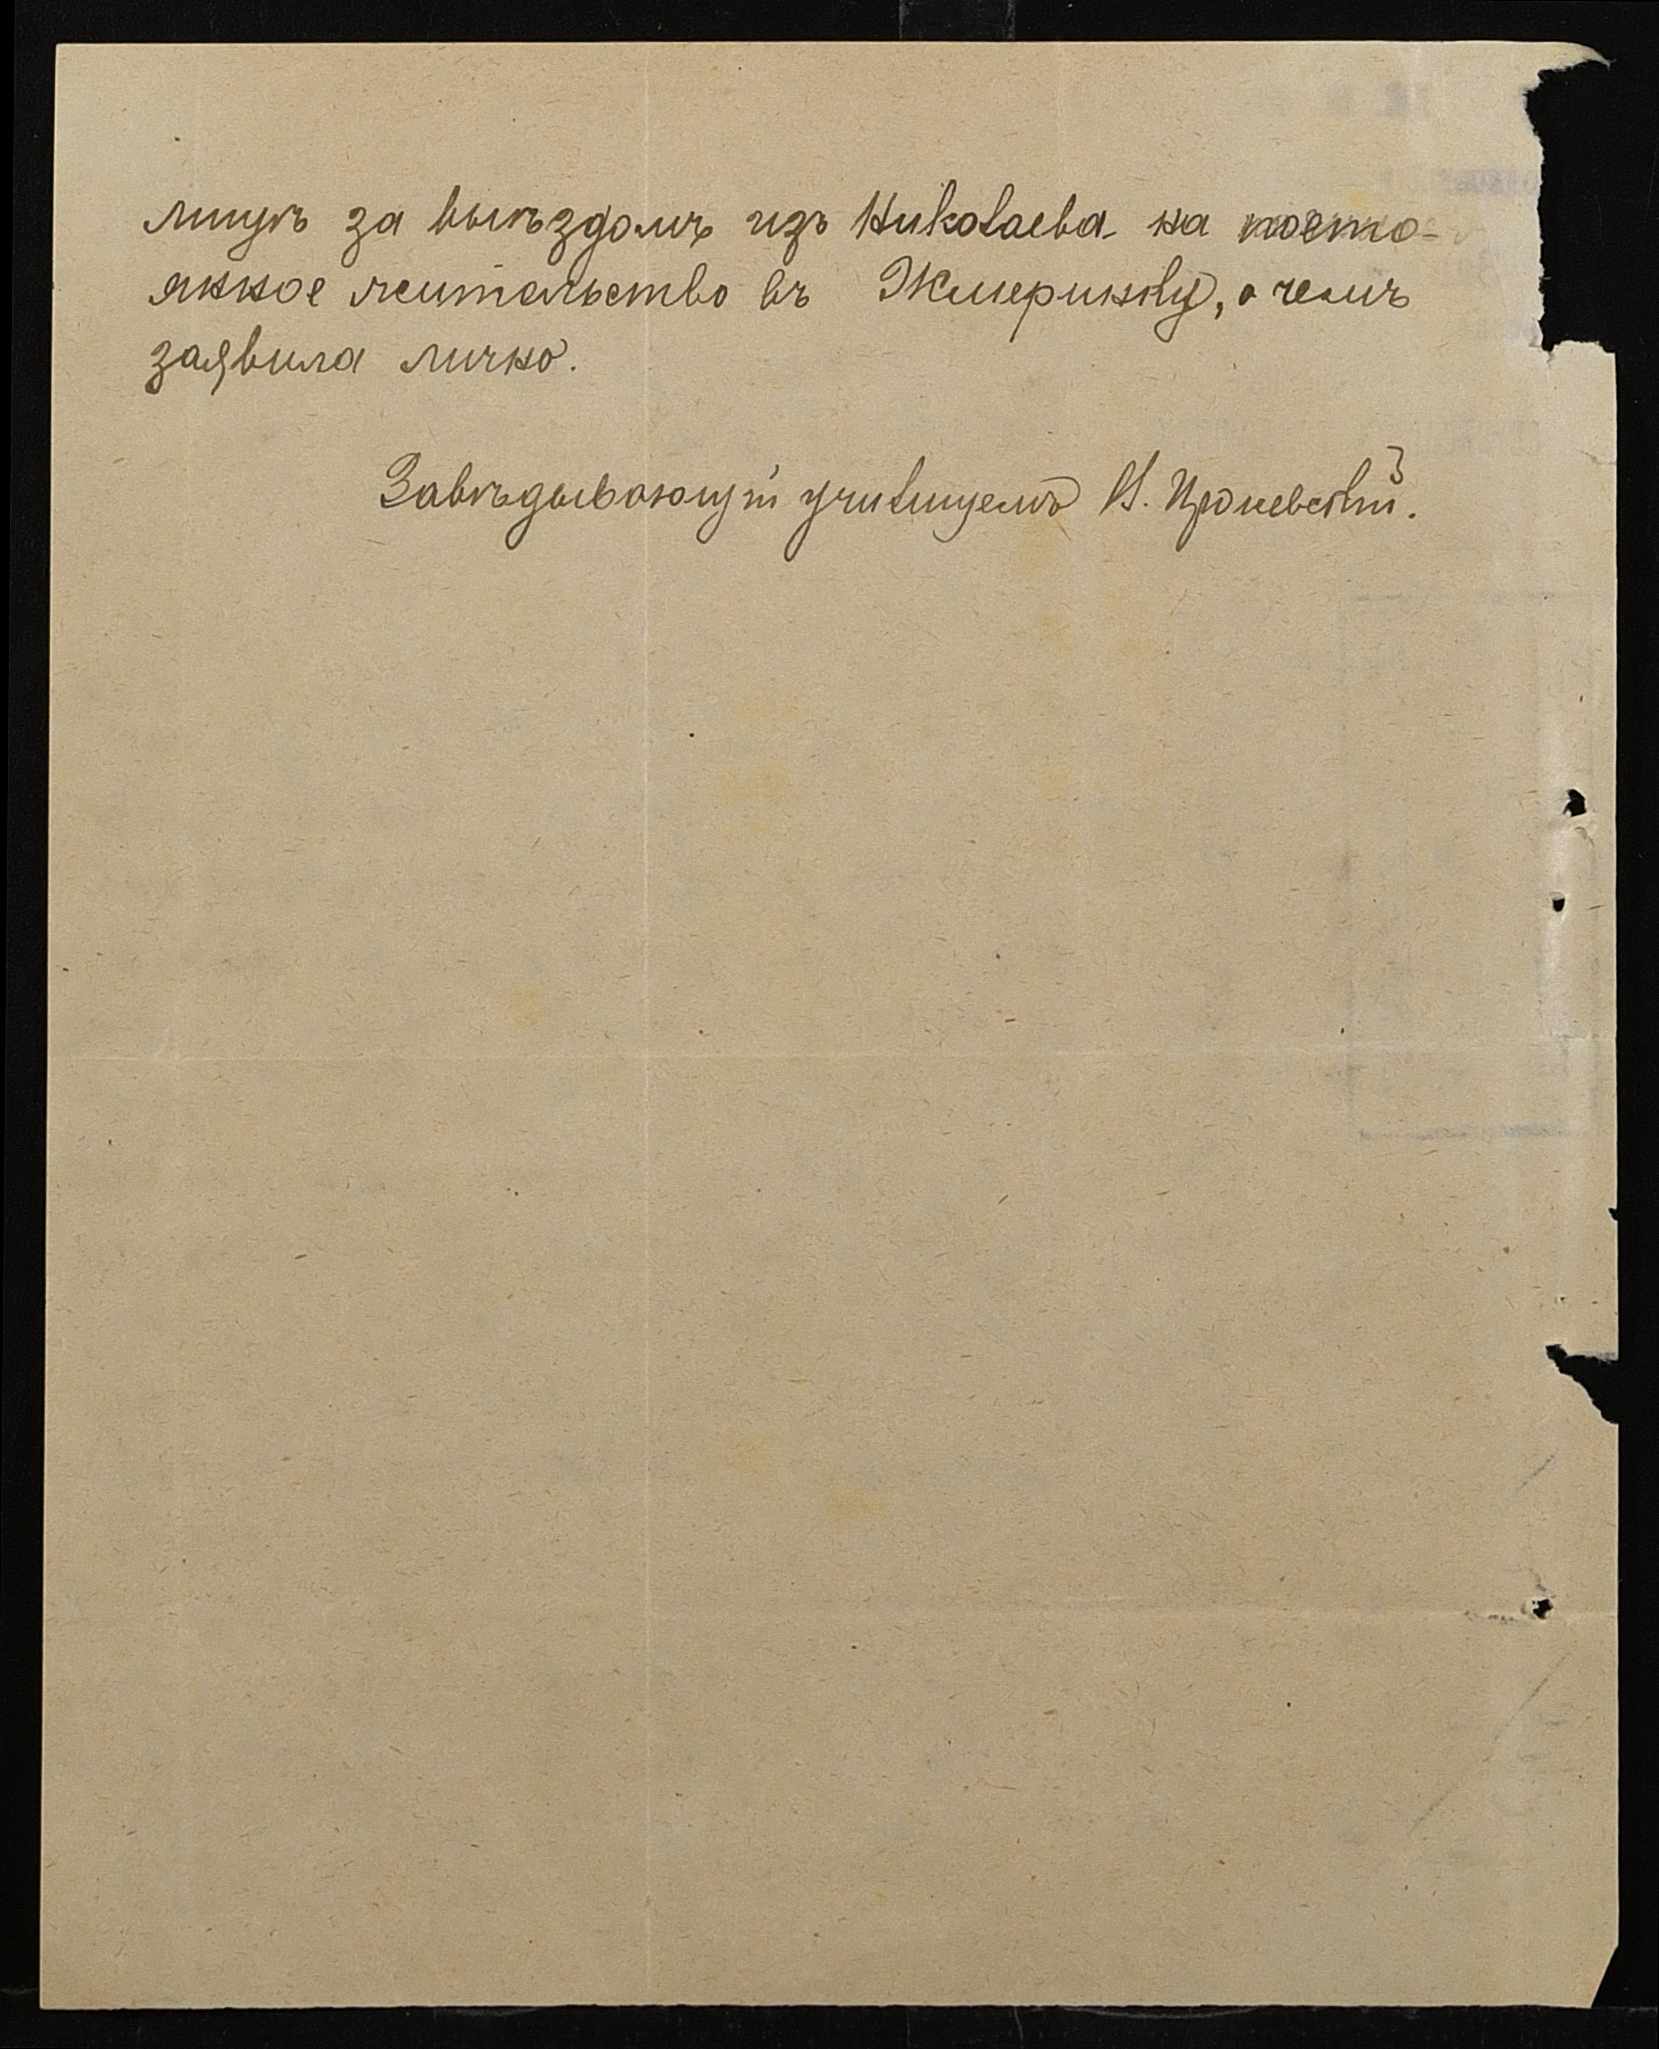 лищѣ за выѣздомъ изъ Николаева на посто-
янное жительство въ Жмеринку, о чемъ
заявила лично.
Завѣдывающій училищемъ